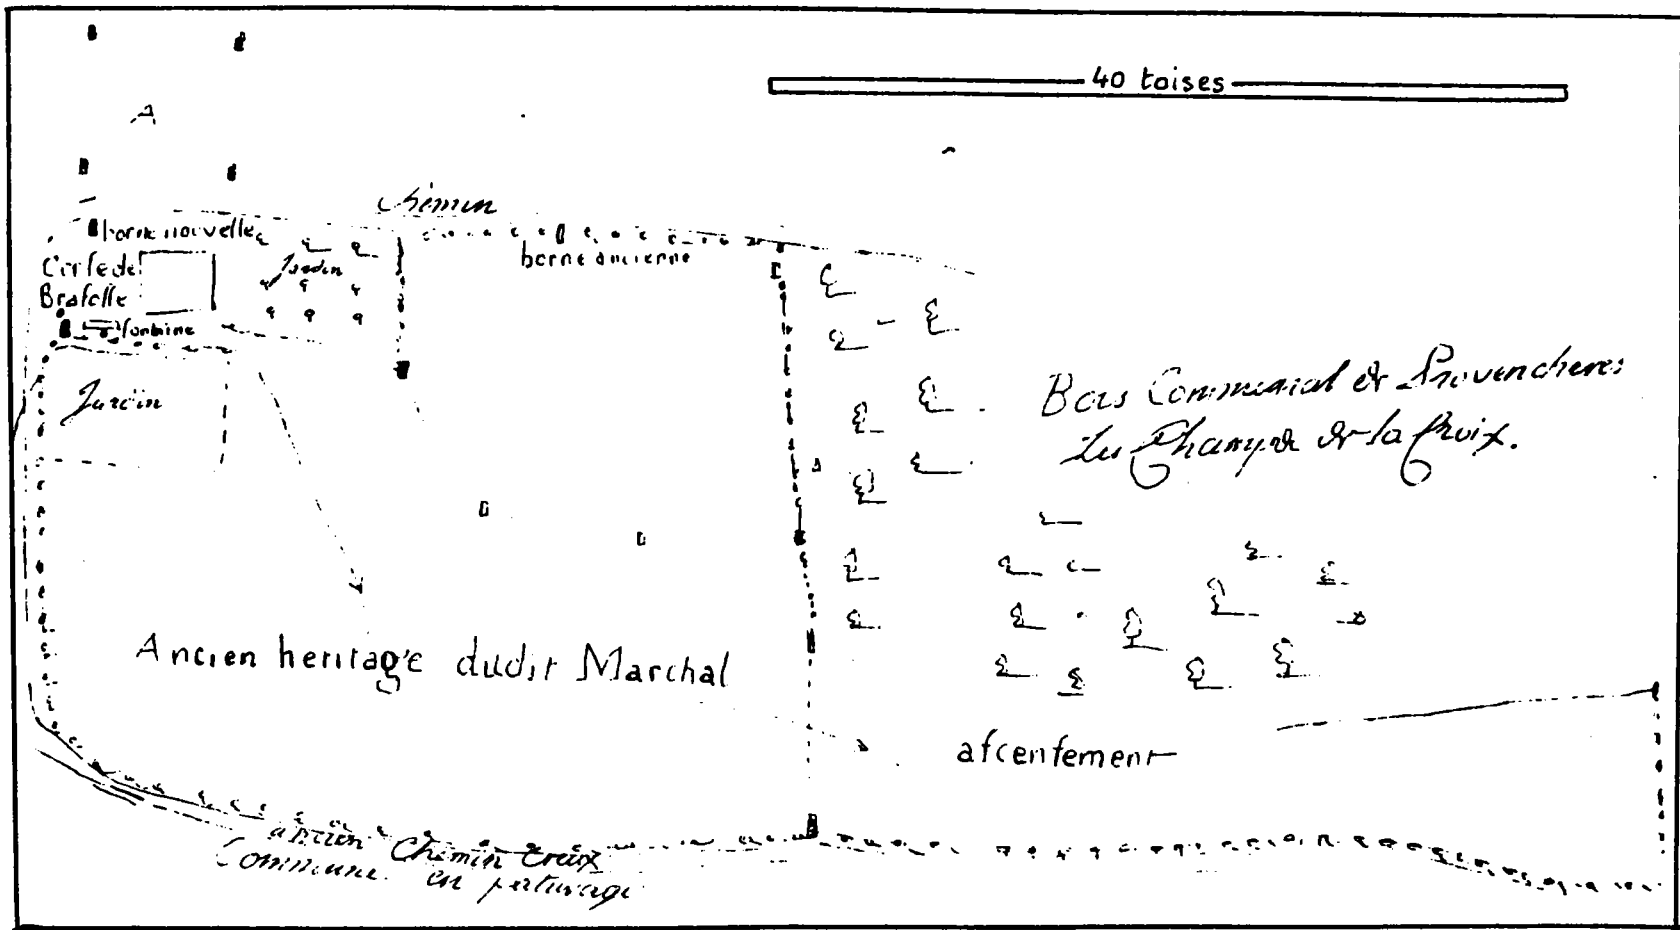 40 toises
A
Chemin
borne nouvelle
borne ancienne
Jardin
Brafelle
fontaine
Jardin
Bois Communal de Provencheres
de la Croix.
Ancien heritage dudit Marchal
afcenfement
ancien Chemin Creux
Commune en paturage